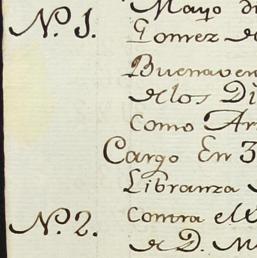 N.º 1. Mayo d
Gomez d
Buenaven
de los Di
Como Ar
Cargo En 3
Libranza
N.º 2. Contra el
de D. M